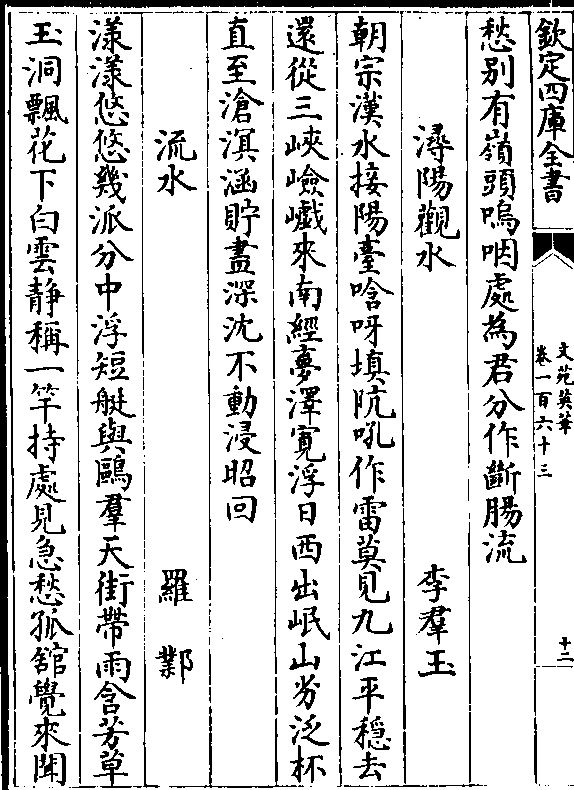 欽定四庫全書
文苑英華
卷一百六十三
十二
愁别有嶺頭嗚咽處為君分作斷腸流
潯陽觀水 李羣玉
朝宗漢水接陽臺唅呀填阬吼作雷莫見九江平穏去
還從三峽嶮巇來南經夢澤寛浮日西出岷山劣泛杯
直至滄溟涵貯盡深沈不動浸昭回
流水 羅鄴
漾漾悠悠幾派分中浮短艇與鷗羣天街帶雨含芳草
玉洞飄花下白雲静稱一竿持處見急愁孤舘覺來聞